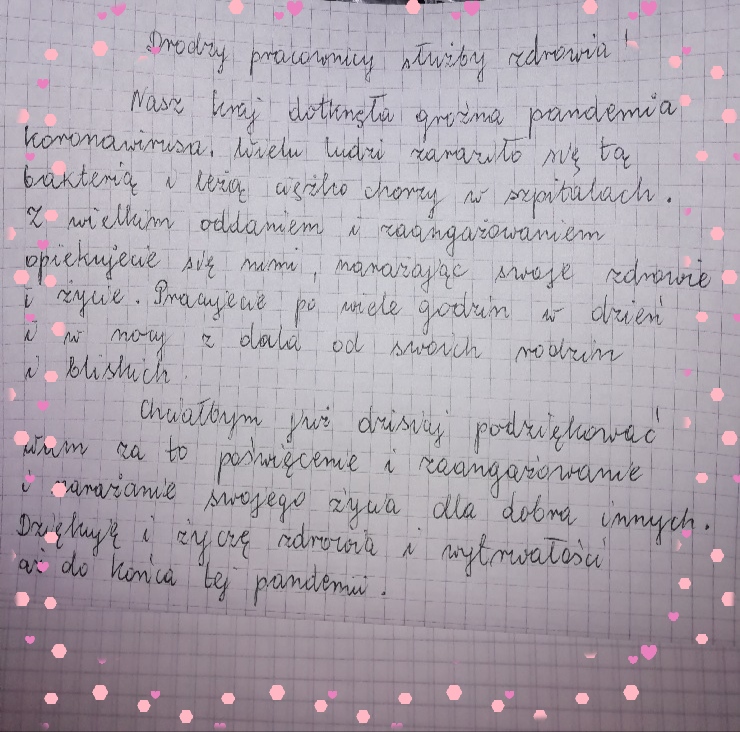 Drodzy pracownicy służby zdrowia!
Nasz kraj dotknęła groźna pandemia
koronawirusa. Wielu ludzi zaraziło się tą
bakterią i leżą ciężko chorzy w szpitalach.
Z wielkim oddaniem i zaangażowaniem
opiekujecie się nimi, narażając swoje zdrowie
i życie. Pracujecie po wiele godzin w dzień
i w nocy z dala od swoich rodzin
i bliskich.
Chciałbym już dzisiaj podziękować
Wam za to poświęcenie i zaangażowanie
i narażanie swojego życia dla dobra innych.
Dziękuję i życzę zdrowia i wytrwałości
aż do końca tej pandemii.